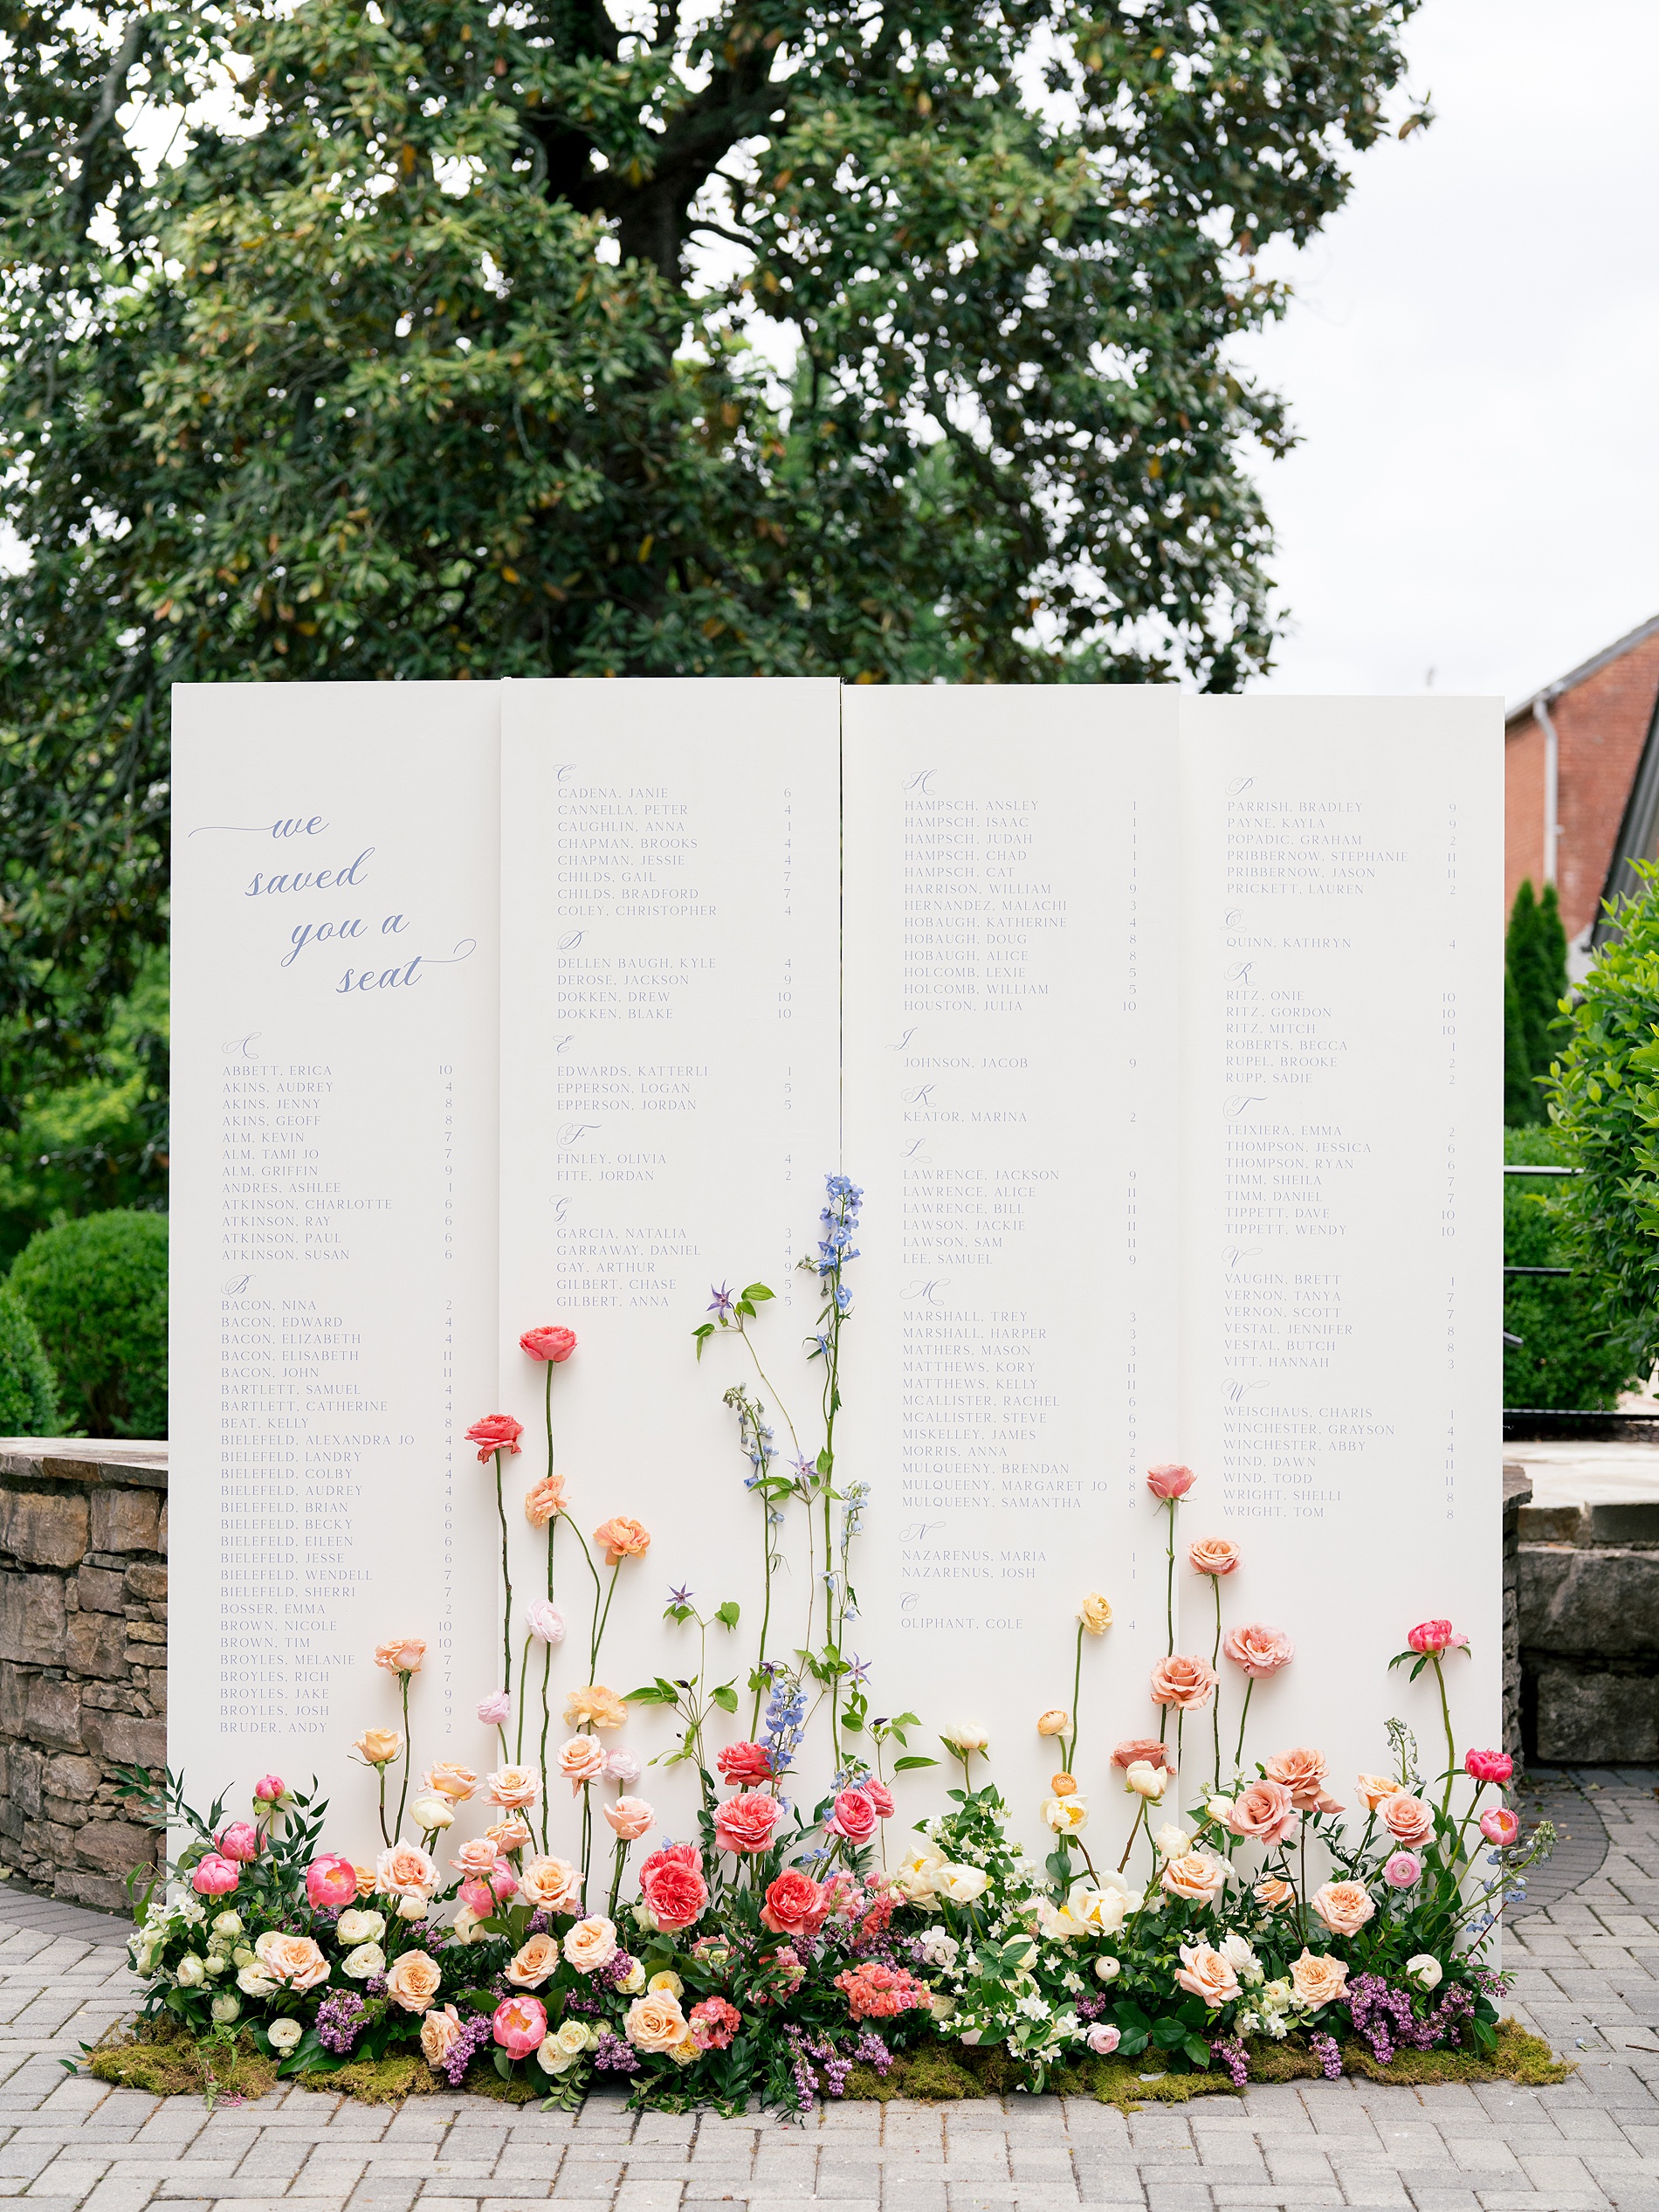 we
saved
you a
seat
A
ABBETT, ERICA 10
AKINS, AUDREY 4
AKINS, JENNY 8
AKINS, GEOFF 8
ALM, KEVIN 7
ALM, TAMI JO 7
ALM, GRIFFIN 9
ANDRES, ASHLEE 1
ATKINSON, CHARLOTTE 6
ATKINSON, RAY 6
ATKINSON, PAUL 6
ATKINSON, SUSAN 6
B
BACON, NINA 2
BACON, EDWARD 4
BACON, ELIZABETH 4
BACON, ELISABETH 11
BACON, JOHN 11
BARTLETT, SAMUEL 4
BARTLETT, CATHERINE 4
BEAT, KELLY 8
BIELEFELD, ALEXANDRA JO 4
BIELEFELD, LANDRY 4
BIELEFELD, COLBY 4
BIELEFELD, AUDREY 4
BIELEFELD, BRIAN 6
BIELEFELD, BECKY 6
BIELEFELD, EILEEN 6
BIELEFELD, JESSE 6
BIELEFELD, WENDELL 7
BIELEFELD, SHERRI 7
BOSSER, EMMA 2
BROWN, NICOLE 10
BROWN, TIM 10
BROYLES, MELANIE 7
BROYLES, RICH 7
BROYLES, JAKE 9
BROYLES, JOSH 9
BRUDER, ANDY 2
C
CADENA, JANIE 6
CANNELLA, PETER 4
CAUGHLIN, ANNA 1
CHAPMAN, BROOKS 4
CHAPMAN, JESSIE 4
CHILDS, GAIL 7
CHILDS, BRADFORD 7
COLEY, CHRISTOPHER 4
D
DELLEN BAUGH, KYLE 4
DEROSE, JACKSON 9
DOKKEN, DREW 10
DOKKEN, BLAKE 10
E
EDWARDS, KATTERLI 1
EPPERSON, LOGAN 5
EPPERSON, JORDAN 5
F
FINLEY, OLIVIA 4
FITE, JORDAN 2
G
GARCIA, NATALIA 3
GARRAWAY, DANIEL 4
GAY, ARTHUR 9
GILBERT, CHASE 5
GILBERT, ANNA 5
H
HAMPSCH, ANSLEY 1
HAMPSCH, ISAAC 1
HAMPSCH, JUDAH 1
HAMPSCH, CHAD 1
HAMPSCH, CAT 1
HARRISON, WILLIAM 9
HERNANDEZ, MALACHI 3
HOBAUGH, KATHERINE 4
HOBAUGH, DOUG 8
HOBAUGH, ALICE 8
HOLCOMB, LEXIE 5
HOLCOMB, WILLIAM 5
HOUSTON, JULIA 10
J
JOHNSON, JACOB 9
K
KEATOR, MARINA 2
L
LAWRENCE, JACKSON 9
LAWRENCE, ALICE 11
LAWRENCE, BILL 11
LAWSON, JACKIE 11
LAWSON, SAM 11
LEE, SAMUEL 9
M
MARSHALL, TREY 3
MARSHALL, HARPER 3
MATHERS, MASON 3
MATTHEWS, KORY 11
MATTHEWS, KELLY 11
MCALLISTER, RACHEL 6
MCALLISTER, STEVE 6
MISKELLEY, JAMES 9
MORRIS, ANNA 2
MULQUEENY, BRENDAN 8
MULQUEENY, MARGARET JO 8
MULQUEENY, SAMANTHA 8
N
NAZARENUS, MARIA 1
NAZARENUS, JOSH 1
O
OLIPHANT, COLE 4
P
PARRISH, BRADLEY 9
PAYNE, KAYLA 9
POPADIC, GRAHAM 2
PRIBBERNOW, STEPHANIE 11
PRIBBERNOW, JASON 11
PRICKETT, LAUREN 2
Q
QUINN, KATHRYN 4
R
RITZ, ONIE 10
RITZ, GORDON 10
RITZ, MITCH 10
ROBERTS, BECCA 1
RUPEL, BROOKE 2
RUPP, SADIE 2
T
TEIXIERA, EMMA 2
THOMPSON, JESSICA 6
THOMPSON, RYAN 6
TIMM, SHEILA 7
TIMM, DANIEL 7
TIPPETT, DAVE 10
TIPPETT, WENDY 10
V
VAUGHN, BRETT 1
VERNON, TANYA 7
VERNON, SCOTT 7
VESTAL, JENNIFER 8
VESTAL, BUTCH 8
VITT, HANNAH 3
W
WEISCHAUS, CHARIS 1
WINCHESTER, GRAYSON 4
WINCHESTER, ABBY 4
WIND, DAWN 11
WIND, TODD 11
WRIGHT, SHELLI 8
WRIGHT, TOM 8